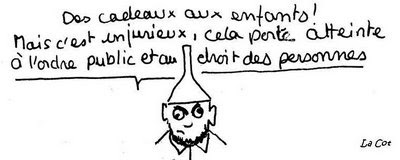 Des cadeaux aux enfants!
Mais c'est injurieux, cela porte atteinte
à l'ordre public et au droit des personnes
La Cot